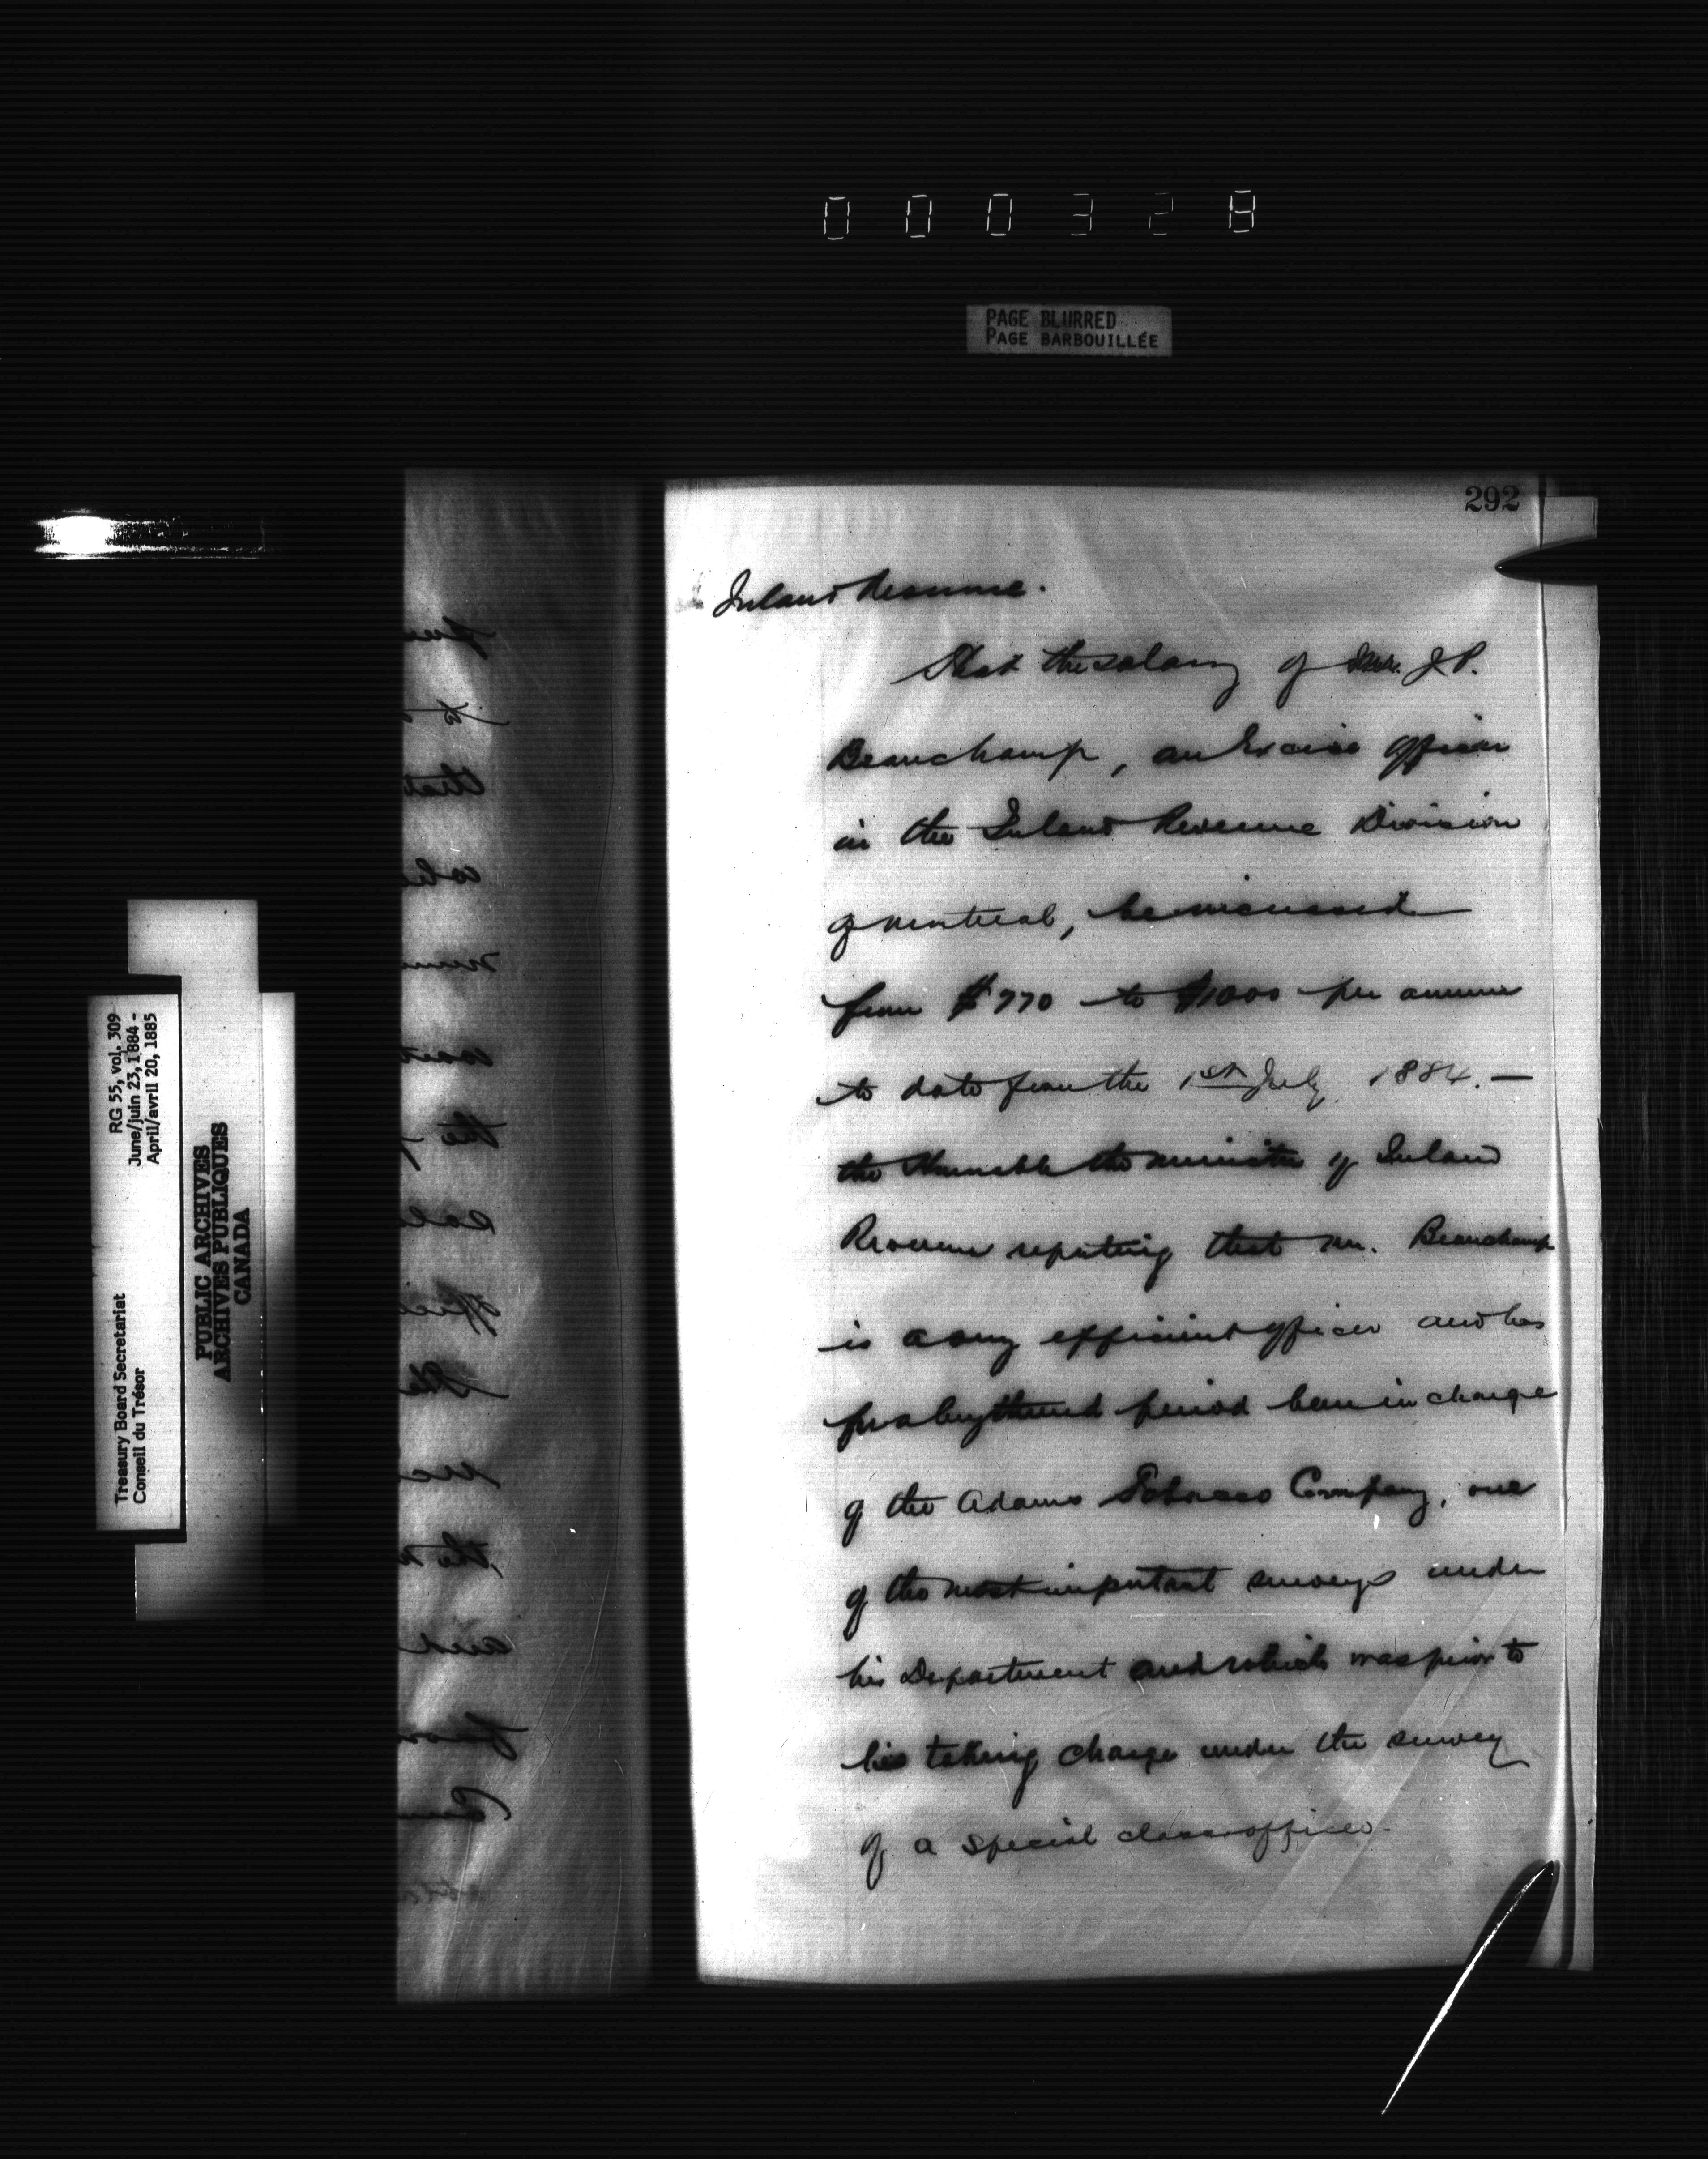 000328
PAGE BLURRED
PAGE BARBOUILLÉE
292
Inland Revenue.
That the salary of Mr. J.P.
Beauchamp, an Excise officer
in the Inland Revenue Division
of Montreal, be increased
from $770 to $1000 per annum
to date from the 1st July 1884. —
the Honorable the Minister of Inland
Revenue reporting that Mr. Beauchamp
is a very efficient officer and has
for a lengthened period been in charge
of the Adams Tobacco Company, one
of the most important surveys under
his Department and which was prior to
his taking charge under the survey
of a special class officer.
that
the
and
RG 55, vol. 309
June/juin 23, 1884 -
April/avril 20, 1885
Treasury Board Secretariat
Conseil du Trésor
PUBLIC ARCHIVES
ARCHIVES PUBLIQUES
CANADA